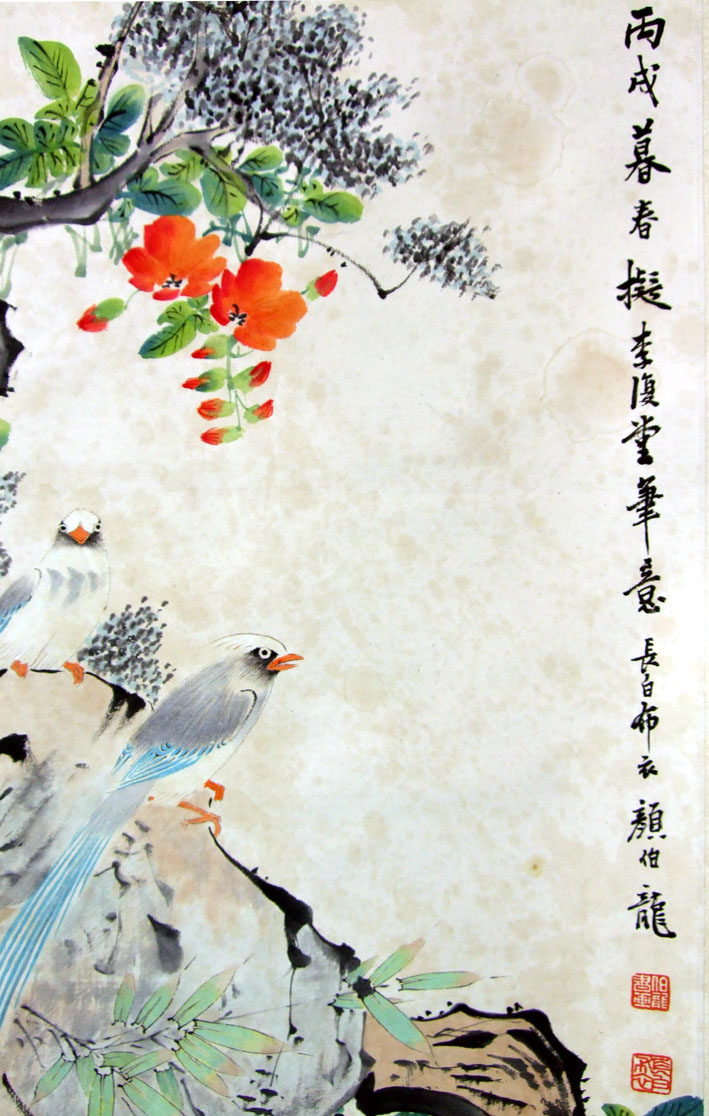 丙戌暮春擬李復堂筆意長白布衣顏伯龍
伯龍書畫